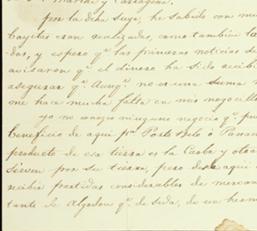 Martas y Cartagena.
por la dcha Suya, he sabido con mu
estan realizadas, como tambien la
das, y espero qe las primeras noticias se
avisaron qe el dinero ha sido recibi
asegurar qe Aunqe no es una suma
me hace mucha falta en mis negocillo
yo no envio ninguno negocio qe pue
Beneficio de aqui pa Porto Belo o Panam
producto de esa tierra es la Caoba y otra
Sirven por su tierra, pero desde aqui
recibir partidas considerables de mercan
tanto de Algodon qe de Seda, de un herm